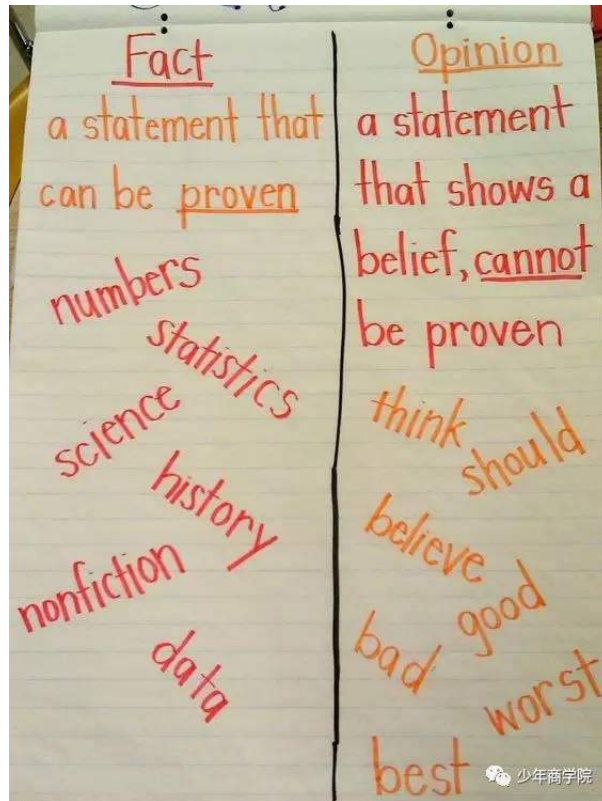 Fact
a statement that
can be proven
numbers
statistics
science
history
nonfiction
data
Opinion
a statement
that shows a
belief, cannot
be proven
think
should
believe
good
bad
worst
best
少年商学院